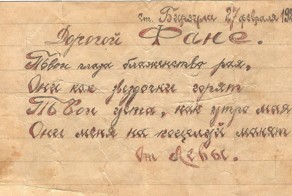 ст. Бирзула 27 февраля 192
Дорогой Фане.
Твои глаза блаженство рая,
Они как звёздочки горят
Твои уста, как утро мая
Они меня на поцелуй манят
от Лёвы.